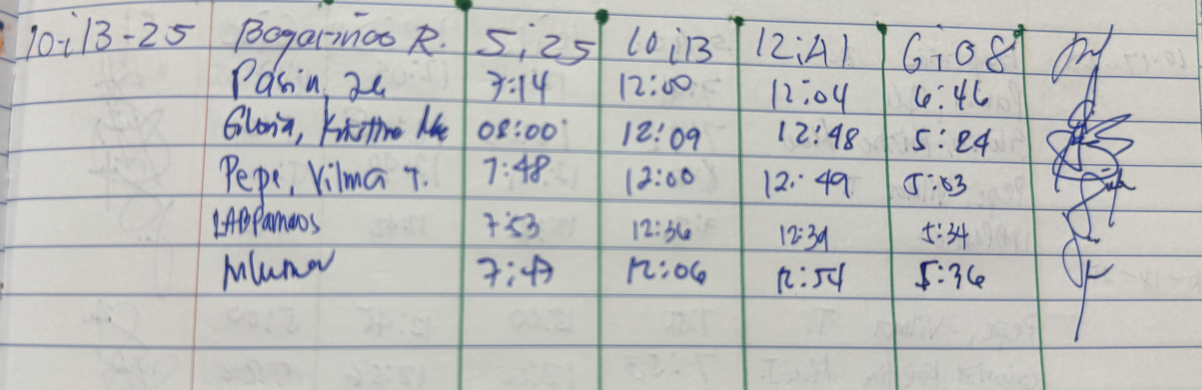 10-13-25 Bogarinao R. 5:25 10:13 12:41 6:08
Pasin, 7:14 12:00 12:04 6:46
Gloria, Kristine Mae 08:00 12:09 12:48 5:24
Pepe, Vilma T. 7:48 12:00 12:49 5:03
7:53 12:36 12:39 5:34
7:47 12:06 12:54 5:36